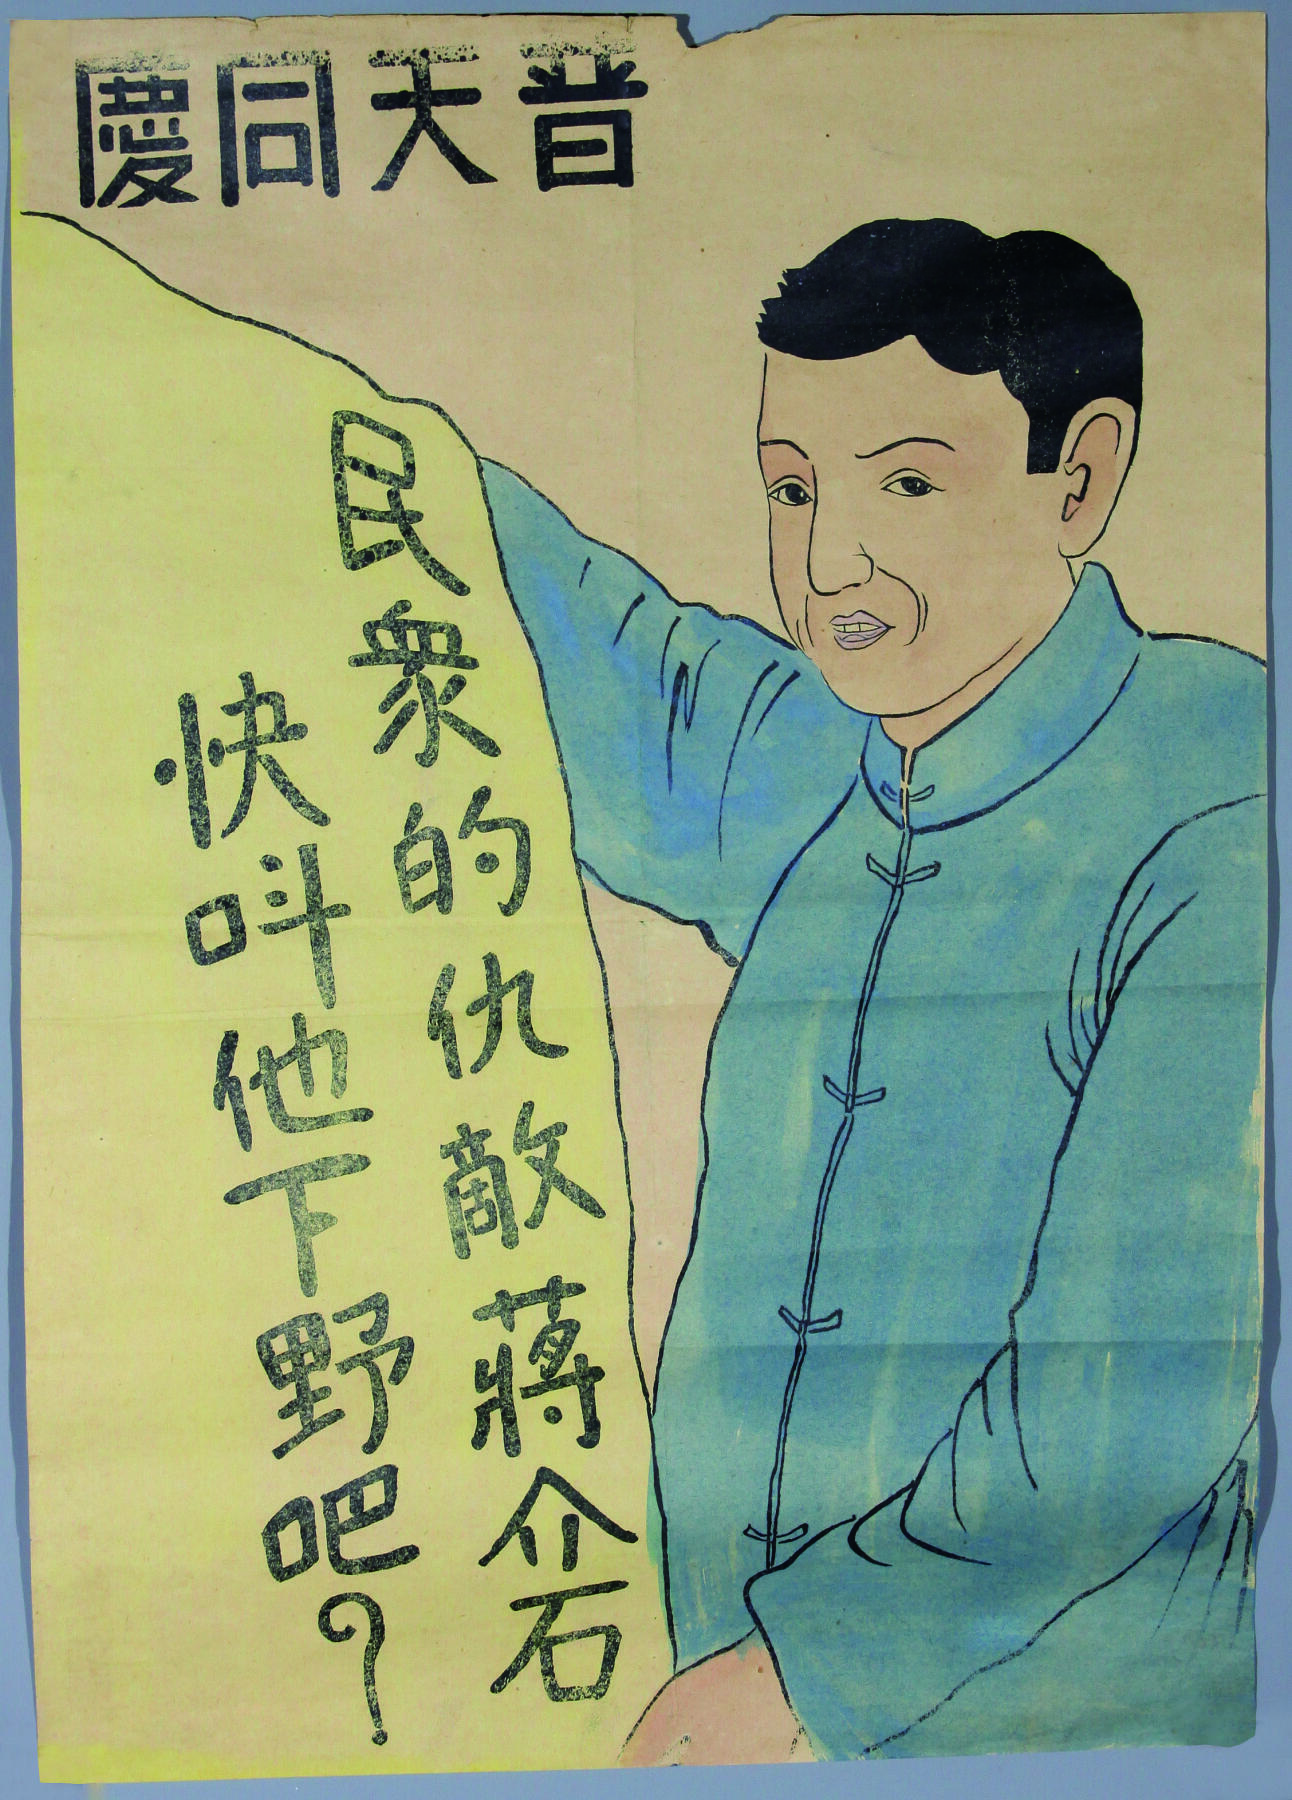 普天同慶
民衆的仇敵蔣介石
快呌他下野吧?